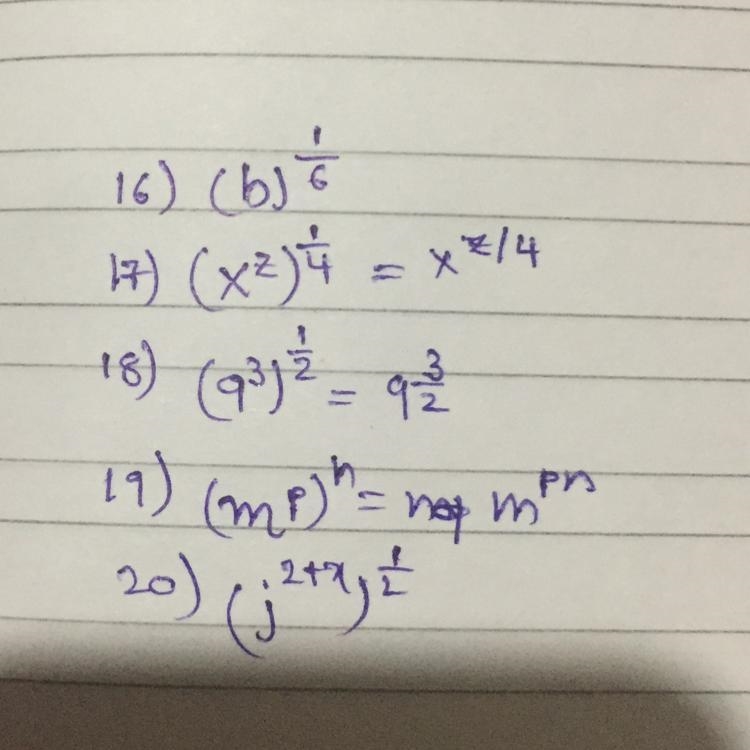 16) (b)^(1/6)
17) (x^z)^(1/4) = x^(z/4)
18) (9^3)^(1/2) = 9^(3/2)
19) (m^p)^n = m^(pn)
20) (j^(2+x))^(1/2)